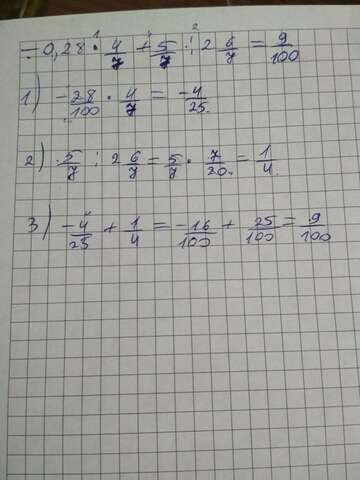 1 2
- 0,28 · 4/7 + 5/7 : 2 6/7 = 9/100
1) -28/100 · 4/7 = -4/25.
2) 5/7 : 2 6/7 = 5/7 · 7/20 = 1/4
3) -4/25 + 1/4 = -16/100 + 25/100 = 9/100